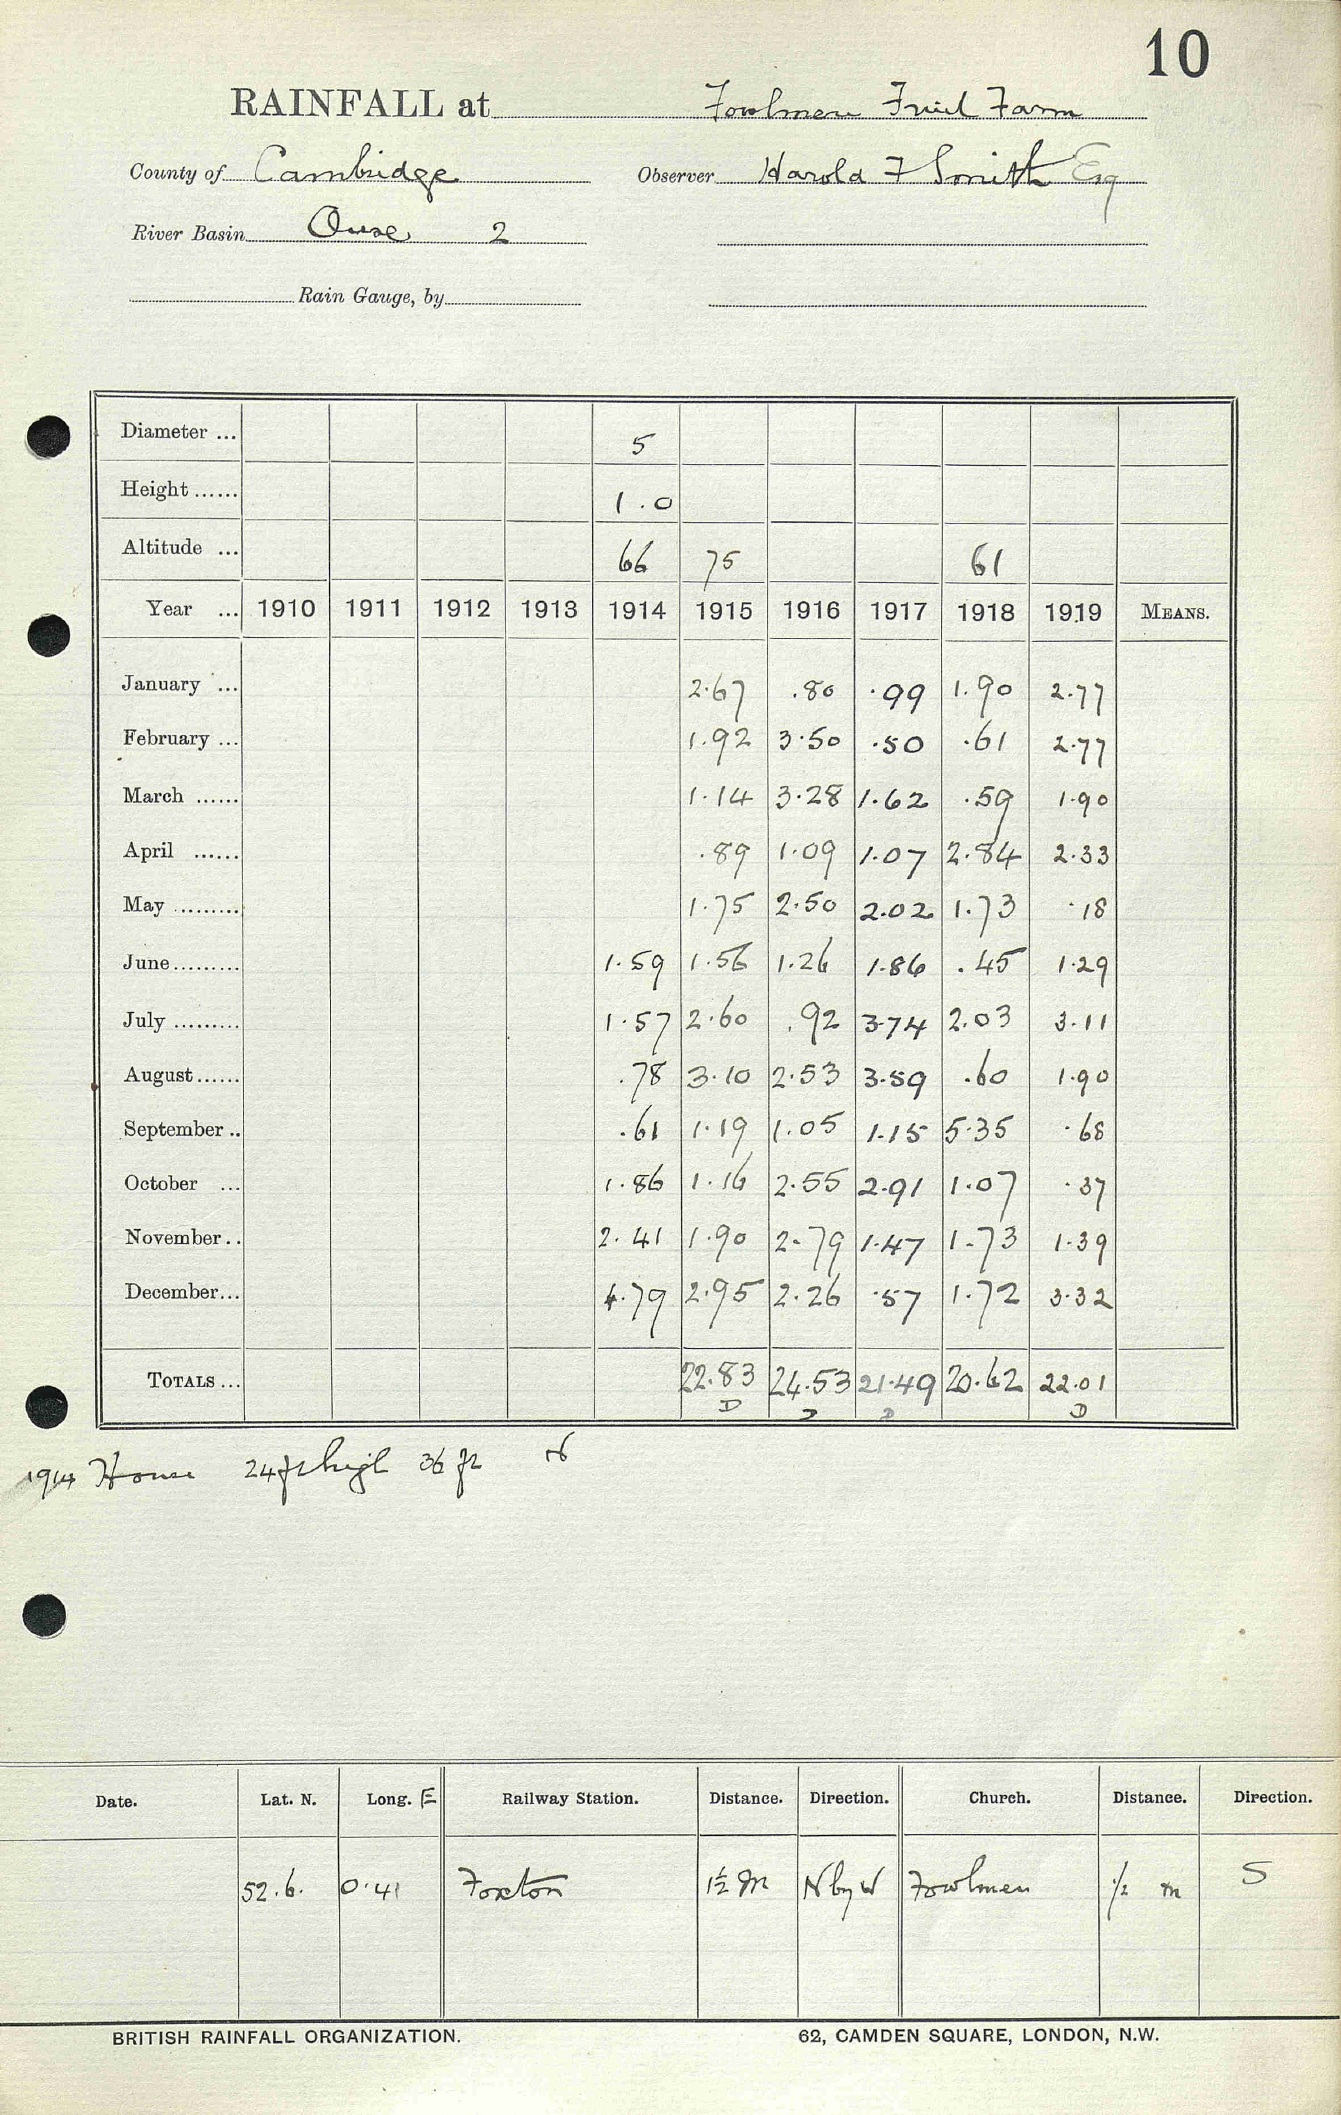 10
RAINFALL at Fowlmere Fruit Farm
County of Cambridge Observer Harold F Smith Esq
River Basin Ouse 2
Rain Gauge, by
Diameter ... 5
Height ...... 1.0
Altitude ... 66 75 61
Year ... 1910 1911 1912 1913 1914 1915 1916 1917 1918 1919 MEANS.
January ... 2.67 .80 .99 1.90 2.77
February ... 1.92 3.50 .50 .61 2.77
March ...... 1.14 3.28 1.62 .59 1.90
April ...... .89 1.09 1.07 2.84 2.33
May ......... 1.75 2.50 2.02 1.73 .18
June......... 1.59 1.56 1.26 1.86 .45 1.29
July ......... 1.57 2.60 .92 3.74 2.03 3.11
August...... .78 3.10 2.53 3.59 .60 1.90
September .. .61 1.19 1.05 1.15 5.35 .68
October ... 1.86 1.16 2.55 2.91 1.07 .37
November.. 2.41 1.90 2.79 1.47 1.73 1.39
December... 4.79 2.95 2.26 .57 1.72 3.32
TOTALS ... 22.83 24.53 21.49 20.62 22.01
D D D D
1914 House 24ft high 36 ft
Date. Lat. N. Long. E Railway Station. Distance. Direction. Church. Distance. Direction.
52.6. 0.41 Foxton 1½ m N by W Fowlmere ½ m S
BRITISH RAINFALL ORGANIZATION. 62, CAMDEN SQUARE, LONDON, N.W.